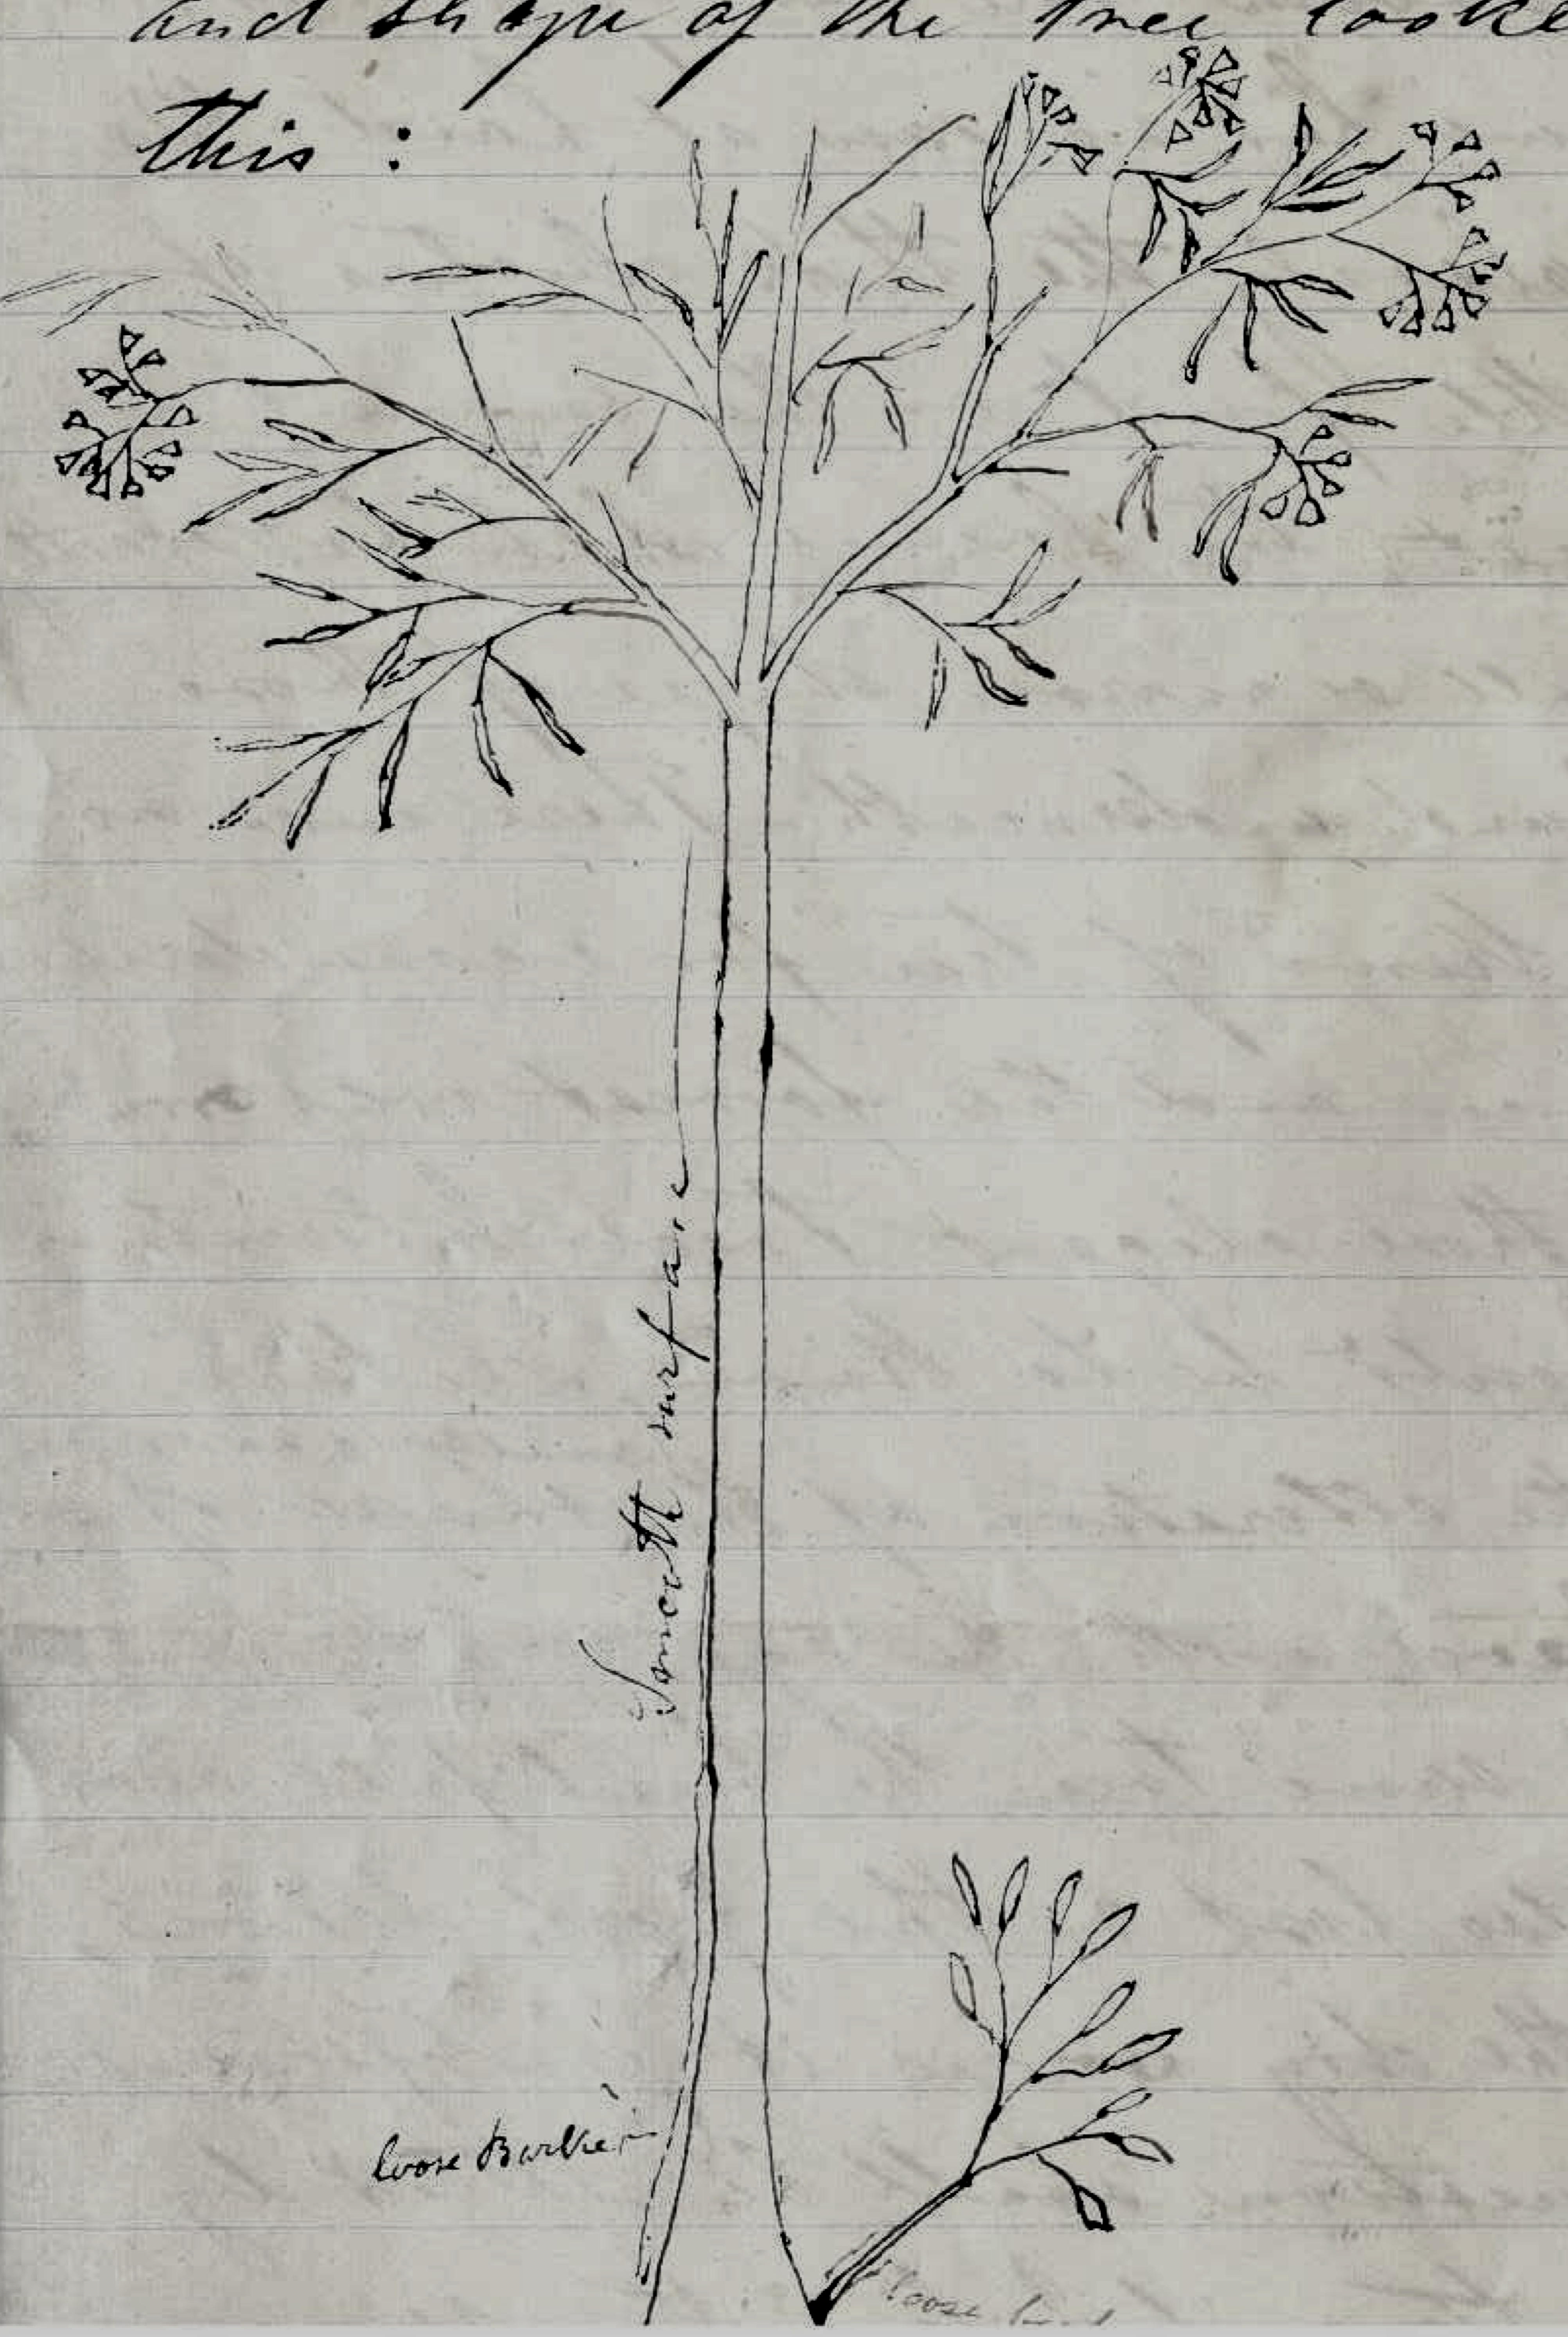 and shape of the tree looke
this :
Smooth surface
loose Bark
loose